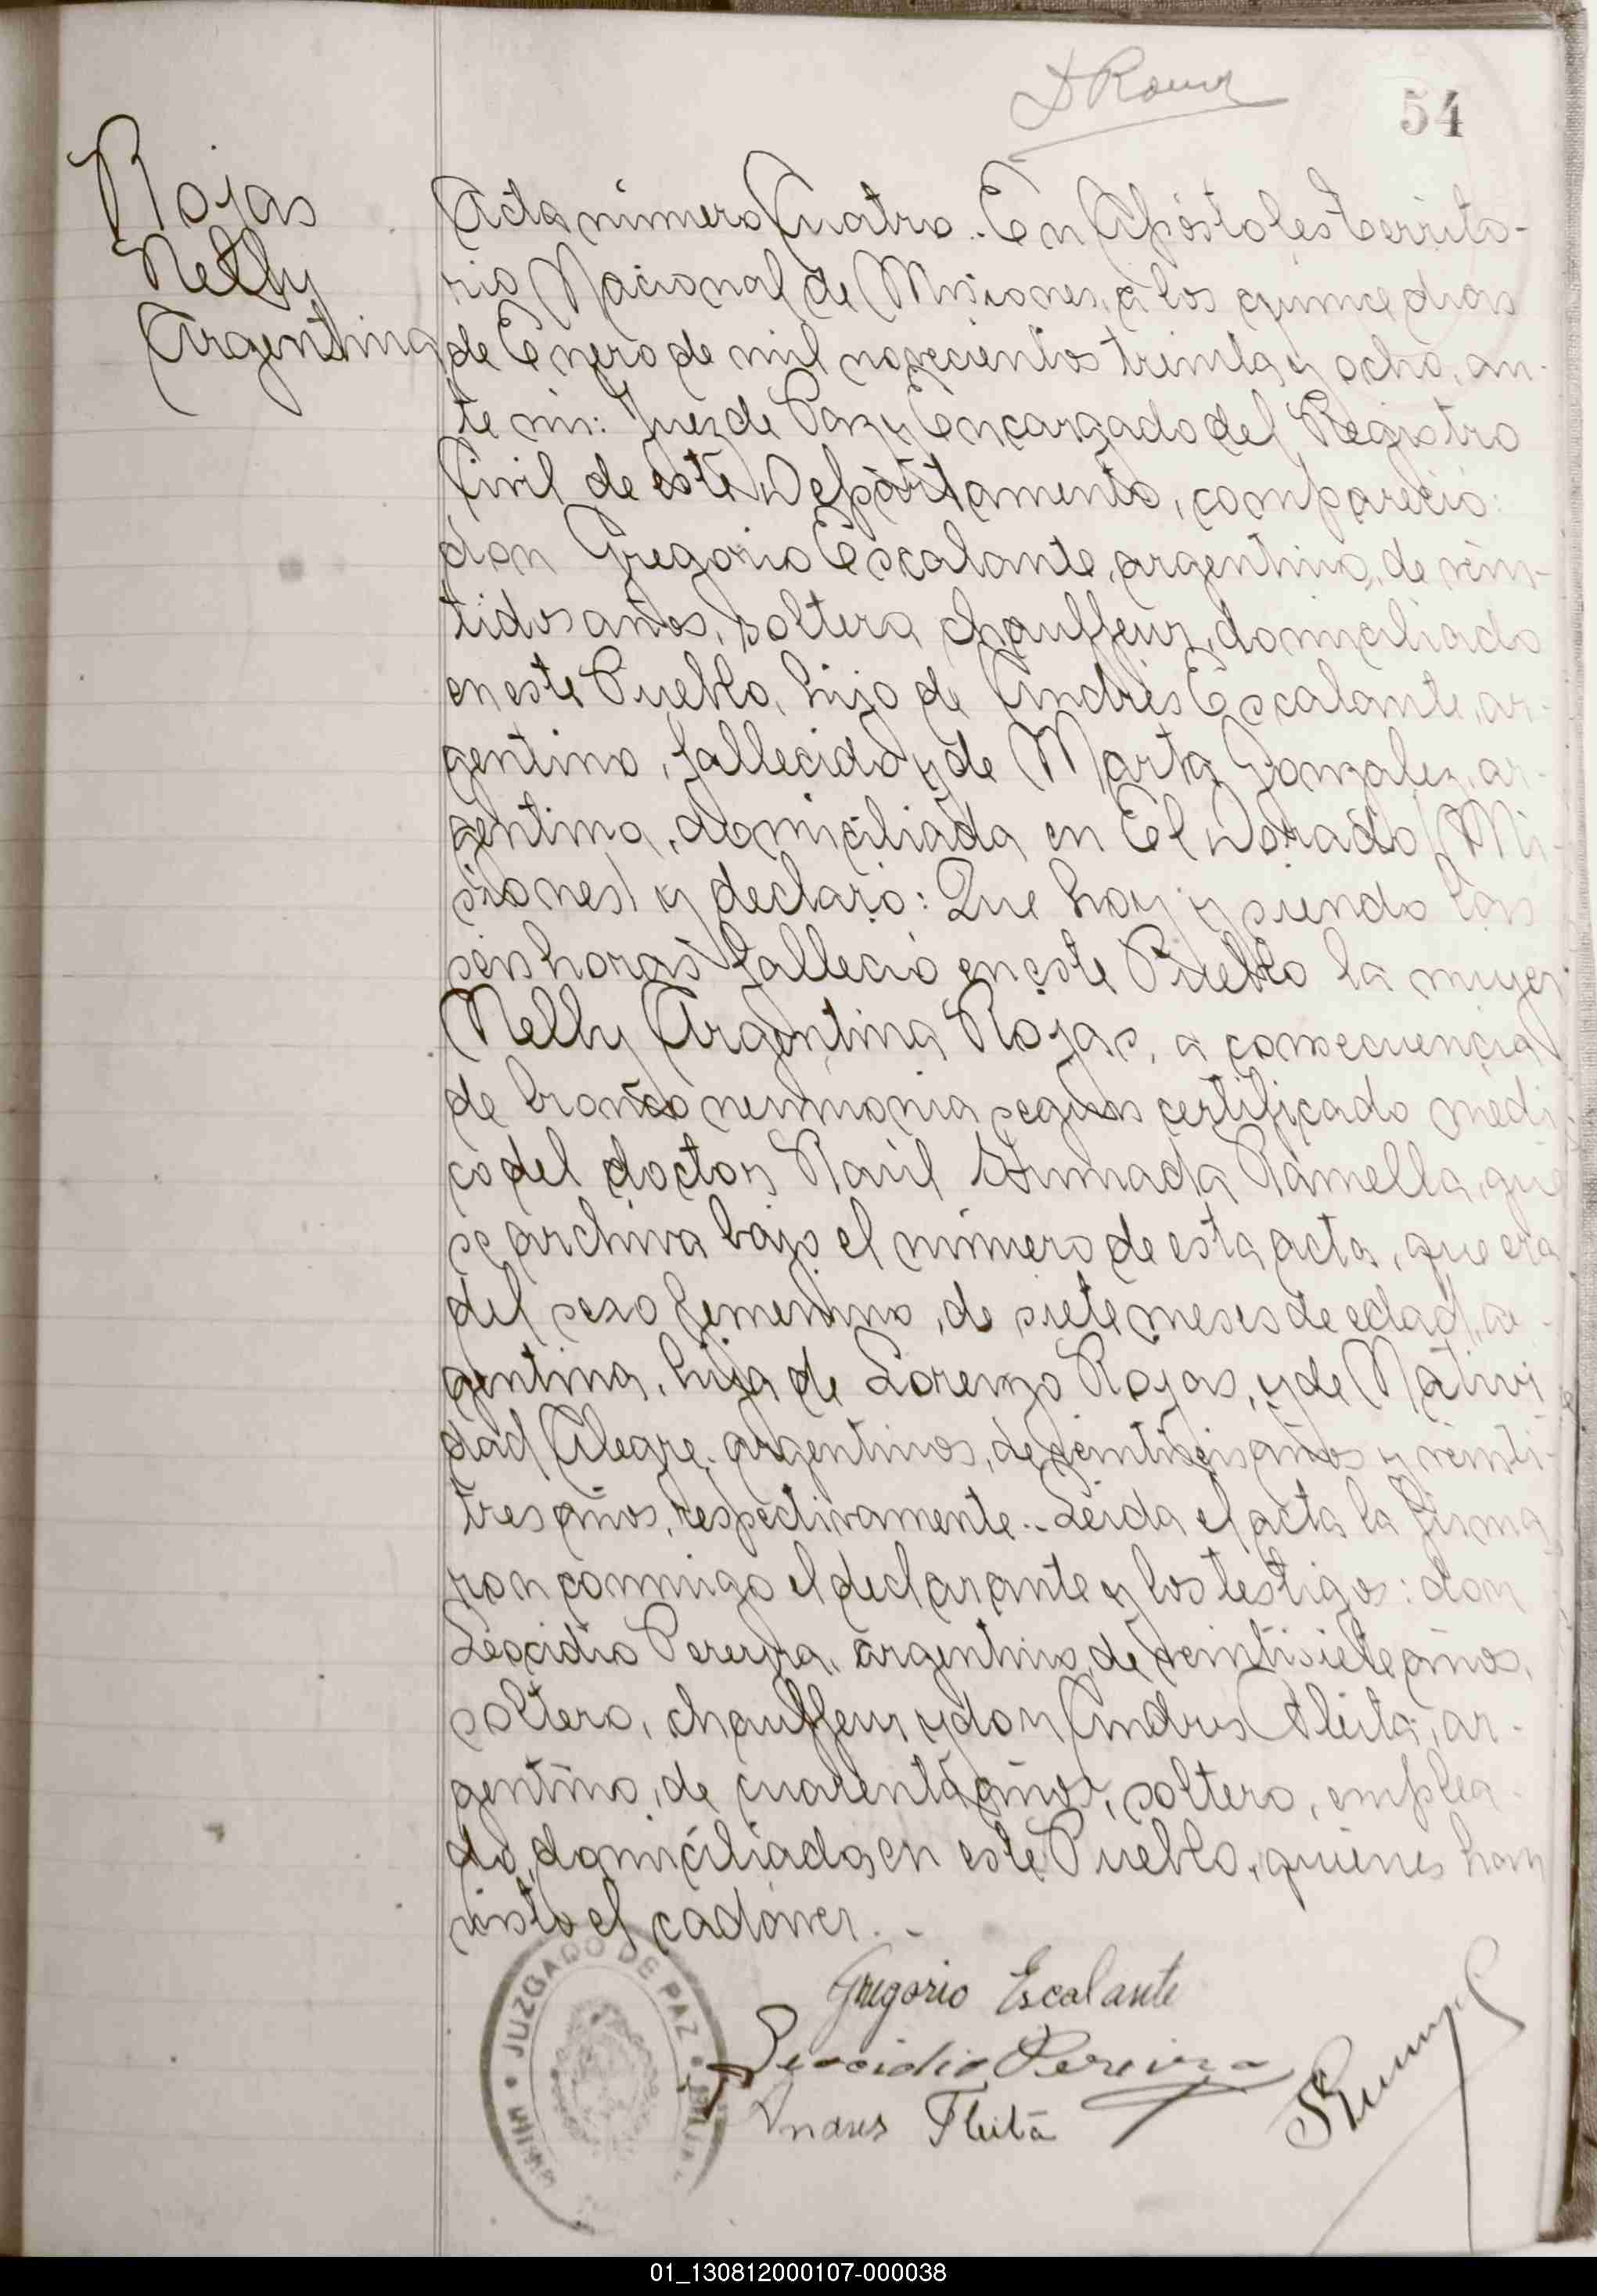 54
Rojas
Nelly
Argentina
Acta número Cuatro.. En Apóstoles Territo-
rio Nacional de Misiones, á los quince dias
de Enero de mil novecientos treinta y ocho, an-
te mi: Juez de Paz y Encargado del Registro
Civil de este Departamento, compareció:
don Gregorio Escalante, argentino, de vein-
tidos años, soltero, chauffeur, domiciliado
en este Pueblo, hijo de Andrés Escalante, ar-
gentino, fallecido y de Marta Gonzalez, ar-
gentina, domiciliada en El Dorado (Mi-
siones) y declaró: Que hoy y siendo las
seis horas falleció en este Pueblo la mujer
Nelly Argentina Rojas, a consecuencia
de bronco neumonia según certificado medi
co del doctor Raúl Ahumada Ramella, que
se archiva bajo el número de esta acta, que era
del sexo femenino, de siete meses de edad, ar-
gentina, hija de Lorenzo Rojas, y de Nativi
dad Alegre, argentinos, de veintiseis años y veinti-
tres años, respectivamente.. Leida el acta la firma
ron conmigo el declarante y los testigos: don
Leocidio Pereyra, argentino, de veintisiete años,
soltero, chauffeur y don Andres Fleita, ar-
gentino, de cuarenta años, soltero, emplea-
do, domiciliados en este Pueblo, quienes han
visto el cadáver..-
JUZGADO DE PAZ
Gregorio Escalante
Leocidio Pereira
Andres Fleita
01_130812000107-000038